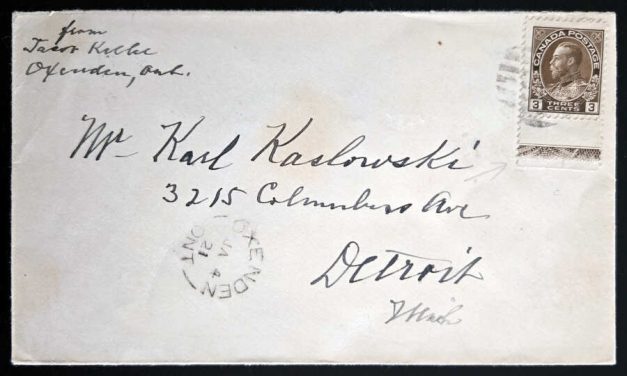 from
Jacob Kelle
Oxenden, Ont.
CANADA POSTAGE
3 THREE CENTS 3
Mr Karl Kaslowski
3215 Columbus Ave
Detroit
Mich
OXENDEN
JA 4
21
ONT